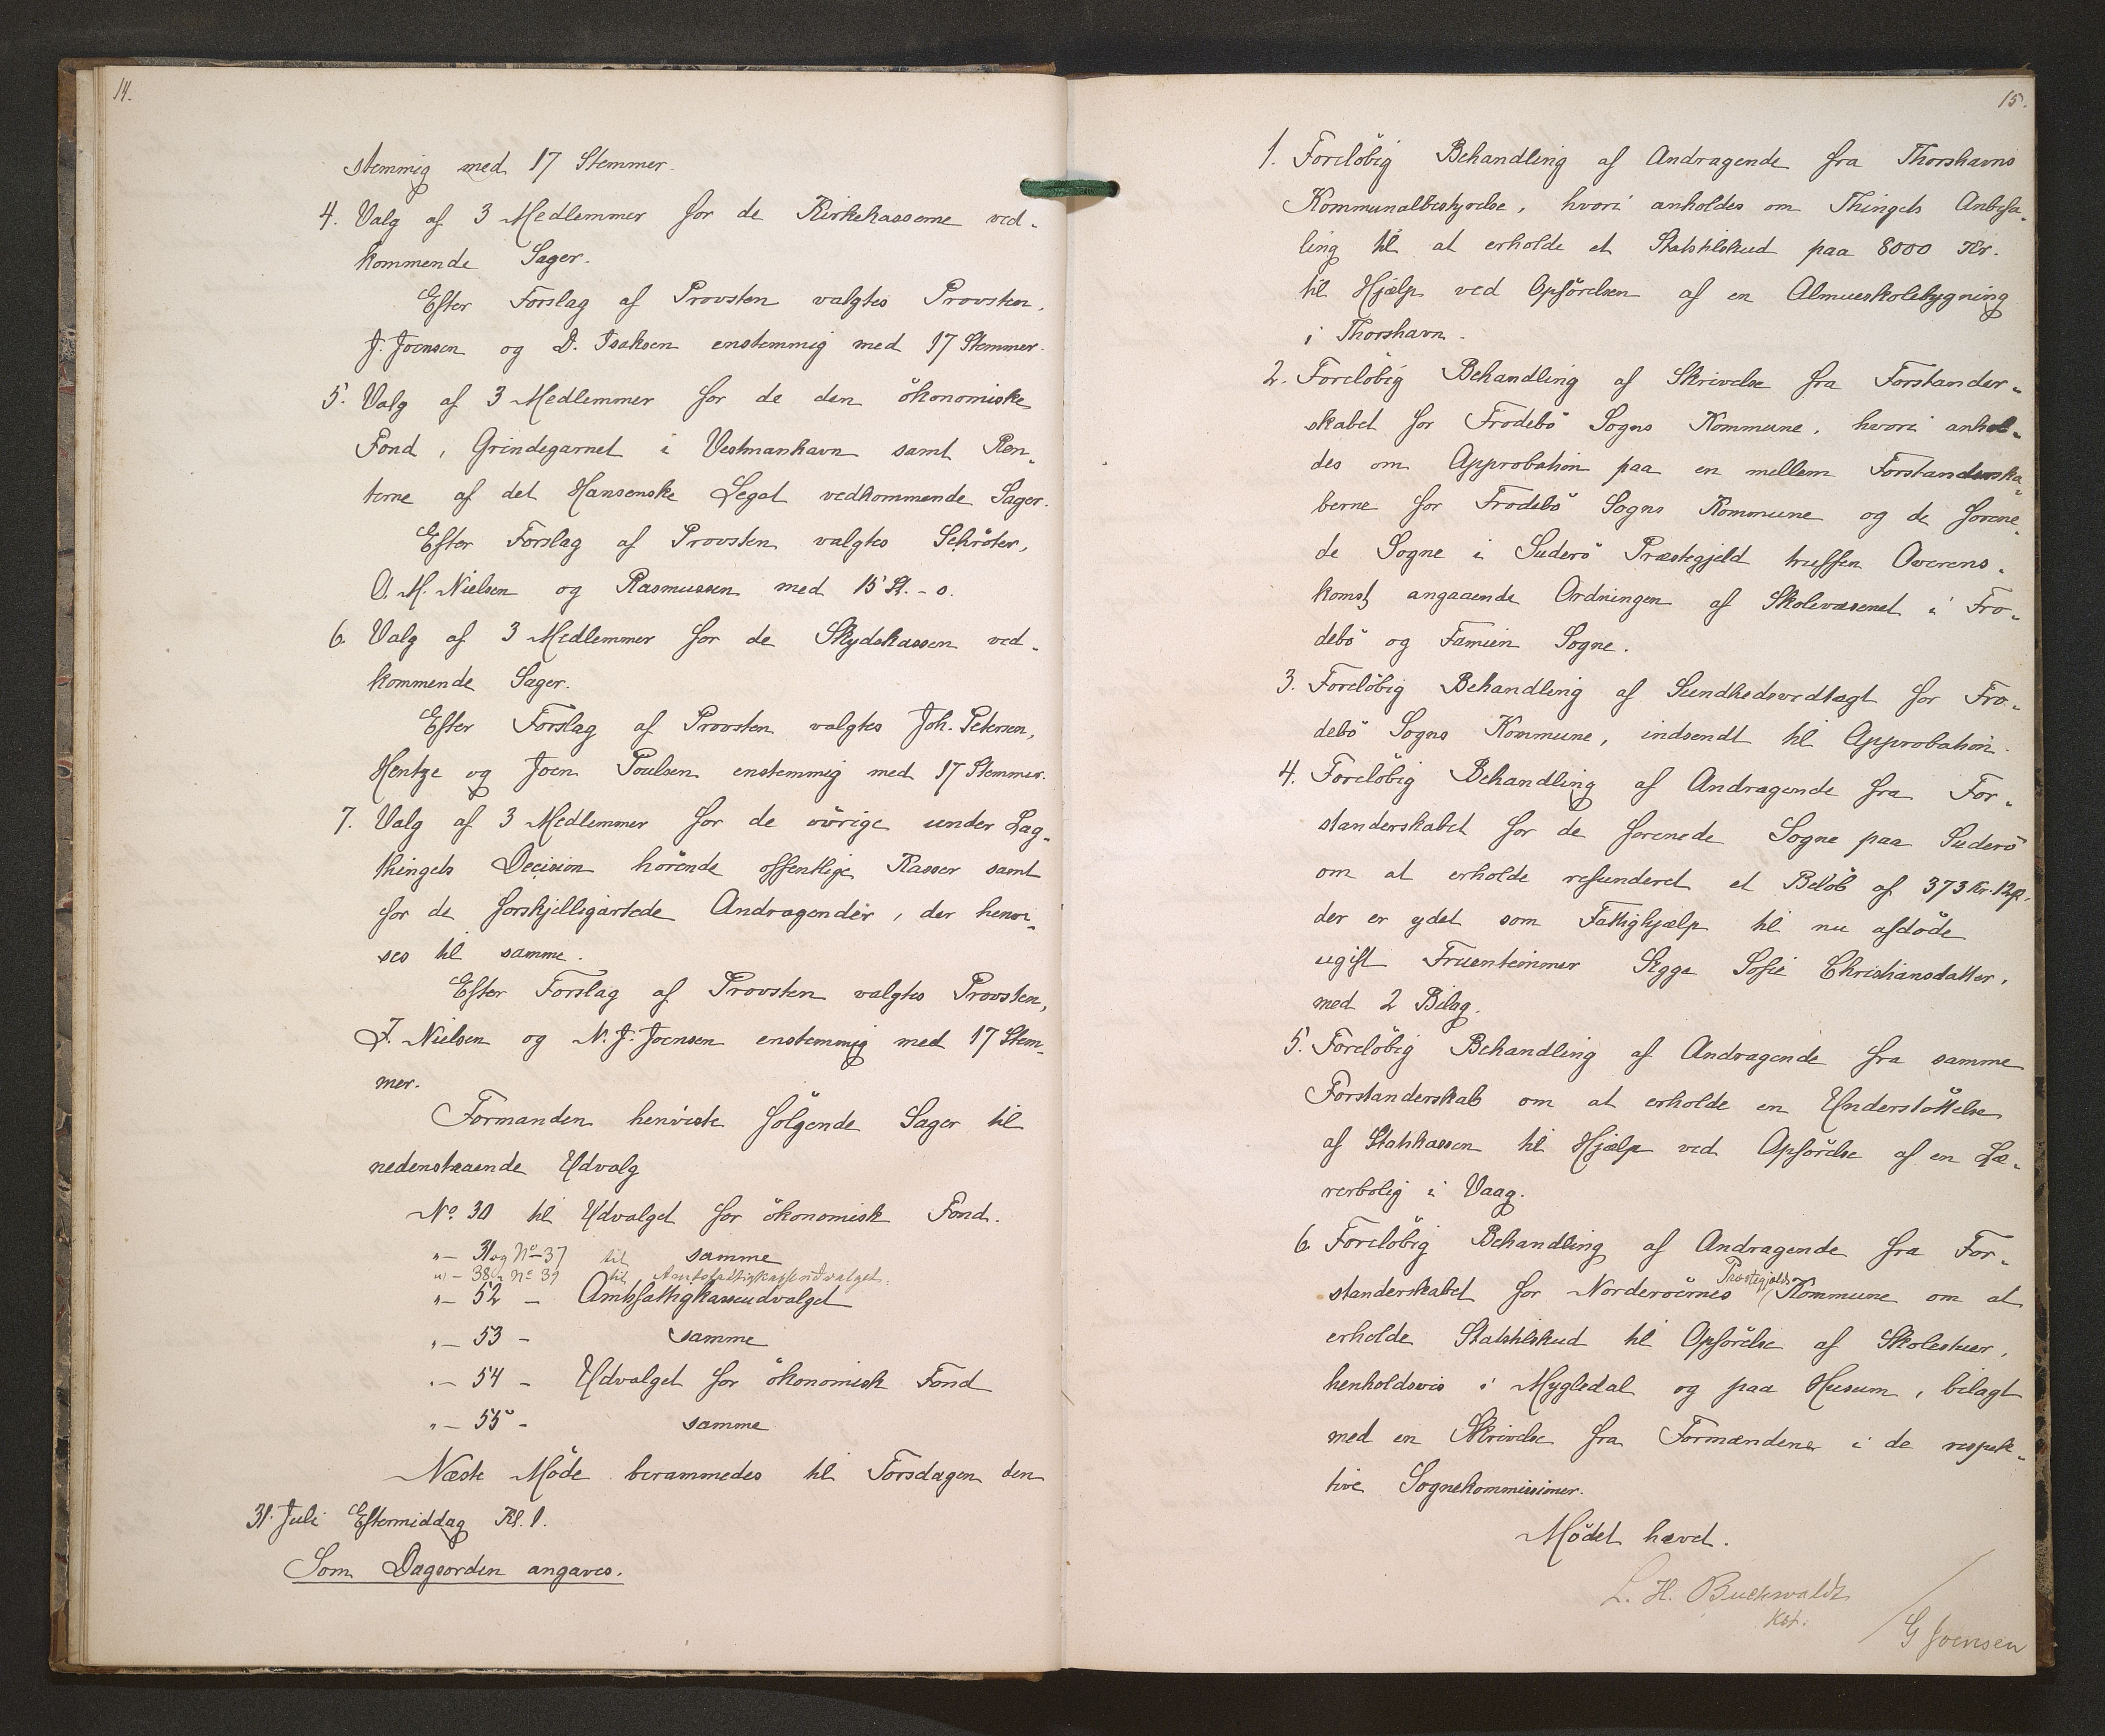 14.
stemmig med 17 Stemmer.
4. Valg af 3 Medlemmer for de Kirkekasserne ved-
kommende Sager.
Efter Forslag af Provsten valgtes Provsten,
J. Joensen og D. Isaksen enstemmig med 17 Stemmer.
5. Valg af 3 Medlemmer for de den ökonomiske
Fond, Grindegarnet i Vestmanhavn samt Ren-
terne af det Hansenske Legat vedkommende Sager.
Efter Forslag af Provsten valgtes Schröter,
O. M. Nielsen og Rasmussen med 15 St. - o.
6. Valg af 3 Medlemmer for de Skydskassen ved-
kommende Sager.
Efter Forslag af Provsten valgtes Joh. Petersen,
Hentze og Joen Poulsen enstemmig med 17 Stemmer.
7. Valg af 3 Medlemmer for de övrige under Lag-
thingets Decision hörende offentlige Kasser samt
for de forskjelligartede Andragender, der henvi-
ses til samme.
Efter Forslag af Provsten valgtes Provsten,
J. Nielsen og N. J. Joensen enstemmig med 17 Stem-
mer.
Formanden henviste fölgende Sager til
nedenstaaende Udvalg
No. 30 til Udvalget for ökonomisk Fond.
" — 31 og No 37 til samme
" — 38 og No 39 til Amtsfattigkasseudvalget.
" — 52 — Amtsfattigkasseudvalget
" — 53 — samme
" — 54 — Udvalget for ökonomisk Fond
" — 55 — samme
Næste Möde berammedes til Torsdagen den
31. Juli Eftermiddag Kl. 1.
Som Dagsorden angaves.
15.
1. Forelöbig Behandling af Andragende fra Thorshavns
Kommunalbestyrelse, hvori anholdes om Thingets Anbefa-
ling til at erholde et Statstilskud paa 8000 Kr.
til Hjælp ved Opförelsen af en Almueskolebygning
i Thorshavn.
2. Forelöbig Behandling af Skrivelse fra Forstander-
skabet for Frodebö Sogns Kommune, hvori anhol-
des om Approbation paa en mellem Forstanderska-
berne for Frodebö Sogns Kommune og de forene-
de Sogne i Suderö Præstegjeld truffen Overens-
komst angaaende Ordningen af Skolevæsenet i Fro-
debö og Famien Sogne.
3. Forelöbig Behandling af Sundhedsvedtægt for Fro-
debö Sogns Kommune, indsendt til Approbation.
4. Forelöbig Behandling af Andragende fra For-
standerskabet for de forenede Sogne paa Suderö
om at erholde refunderet et Belöb af 373 Kr. 12 Ø.
der er ydet som Fattighjælp til nu afdöde
ugift Fruentimmer Sigga Sofie Christiansdatter,
med 2 Bilag.
5. Forelöbig Behandling af Andragende fra samme
Forstanderskab om at erholde en Understöttelse
af Statskassen til Hjælp ved Opförelse af en Læ-
rerbolig i Vaag.
6. Forelöbig Behandling af Andragende fra For-
standerskabet for Norderöernes Præstegjelds Kommune om at
erholde Statstilskud til Opförelse af Skolestuer,
henholdsvis i Mygledal og paa Husum, bilagt
med en Skrivelse fra Formændene i de respek-
tive Sognekommissioner.
Mödet hævet.
L. H. Buchwaldt
Kst.
/ G Joensen